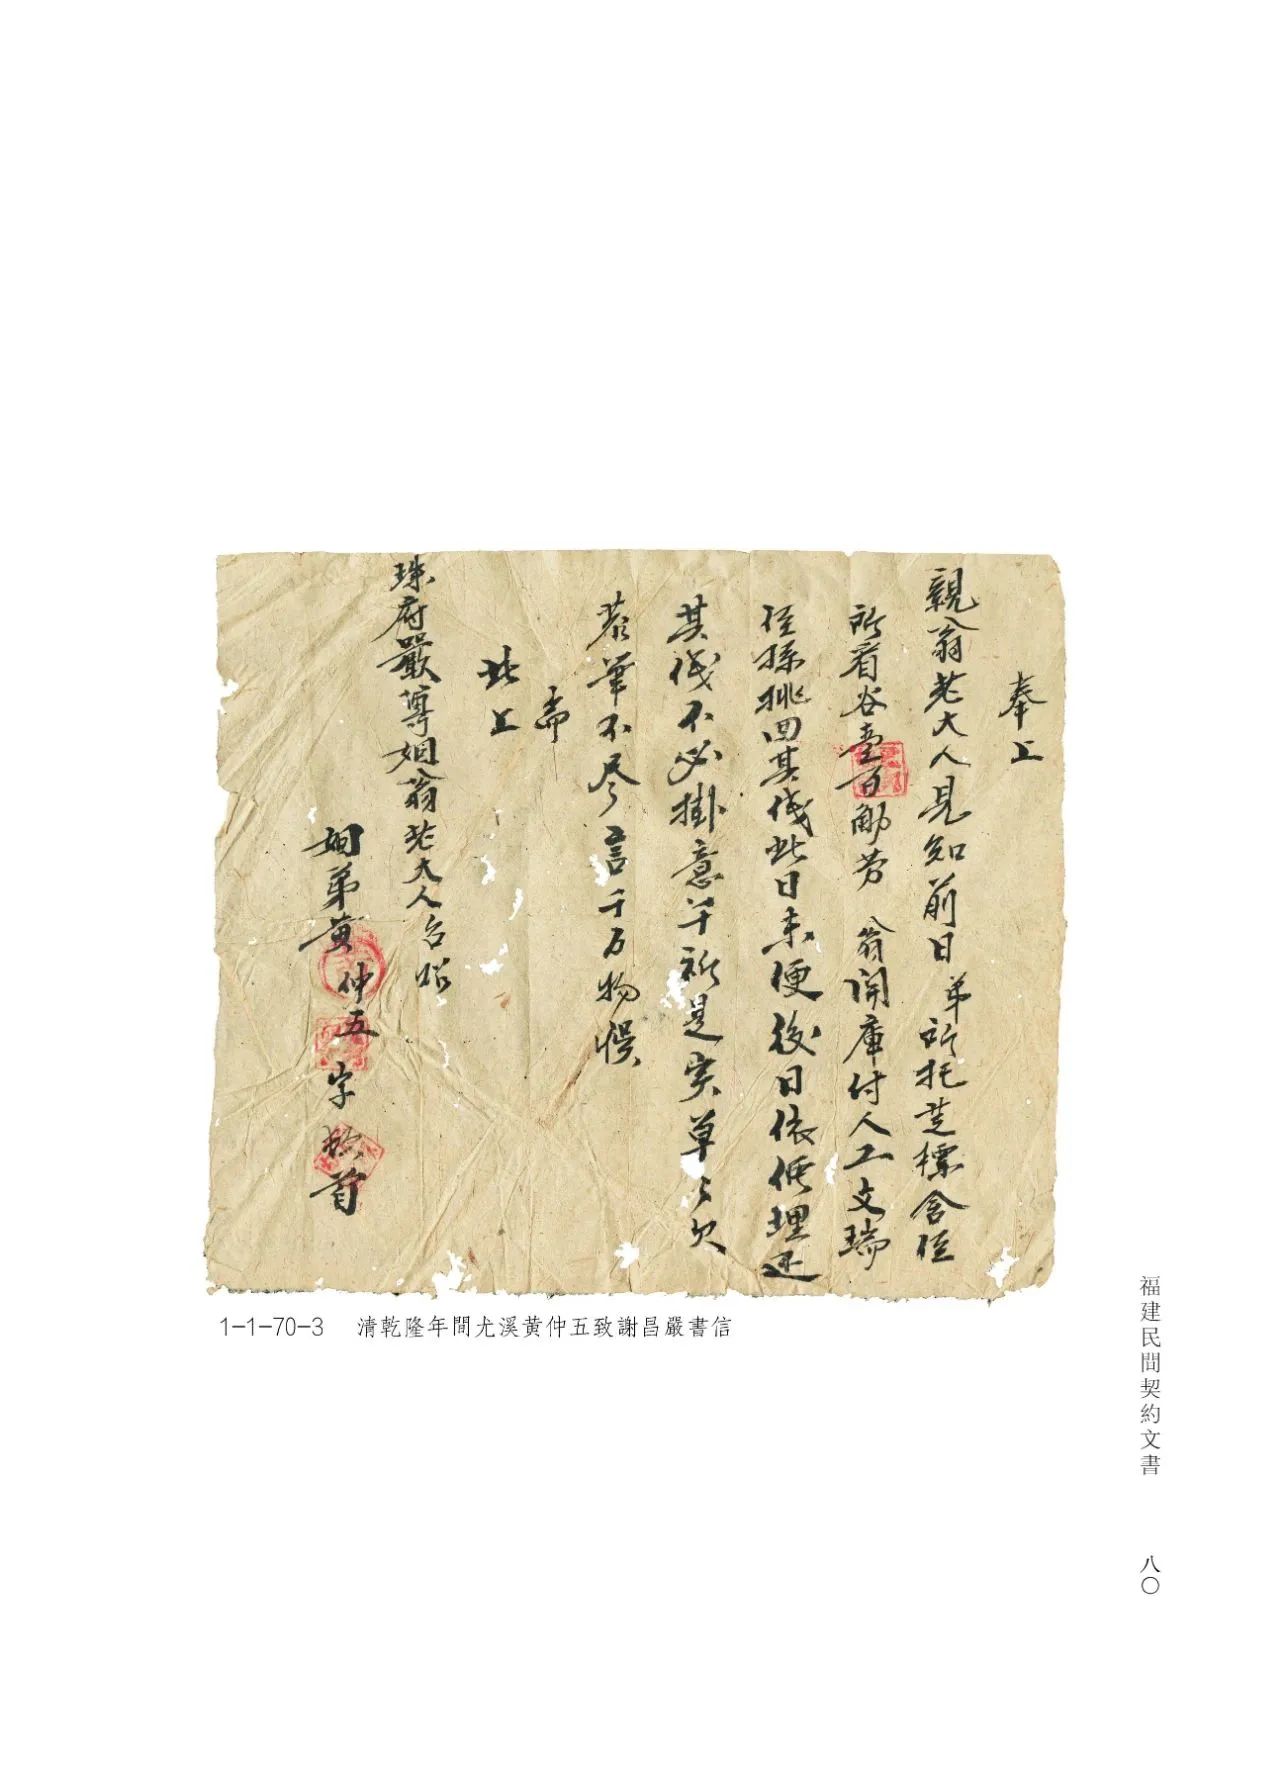 奉上
親翁老大人見知前日弟所托芝標舍侄
所看谷壹百觔劳　翁開庫付人工文瑞
侄孫挑回其伐此日未便後日依価埋还
其伐不必掛意千祈是实草々欠
恭筆不尽言千万物悞
耑
此上
珠府嚴尊姻翁老大人台炤
姻弟黄仲五字
首
1-1-70-3　清乾隆年間尤溪黃仲五致謝昌嚴書信
福建民間契約文書
八〇